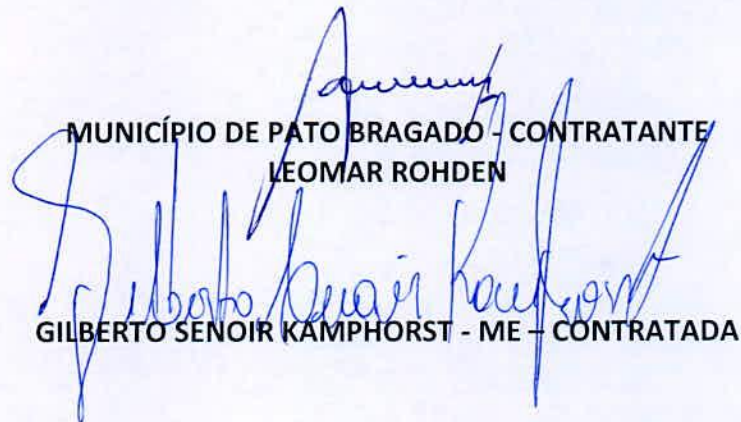 MUNICÍPIO DE PATO BRAGADO - CONTRATANTE
LEOMAR ROHDEN
Gilberto Senoir Kamphorst
GILBERTO SENOIR KAMPHORST - ME – CONTRATADA